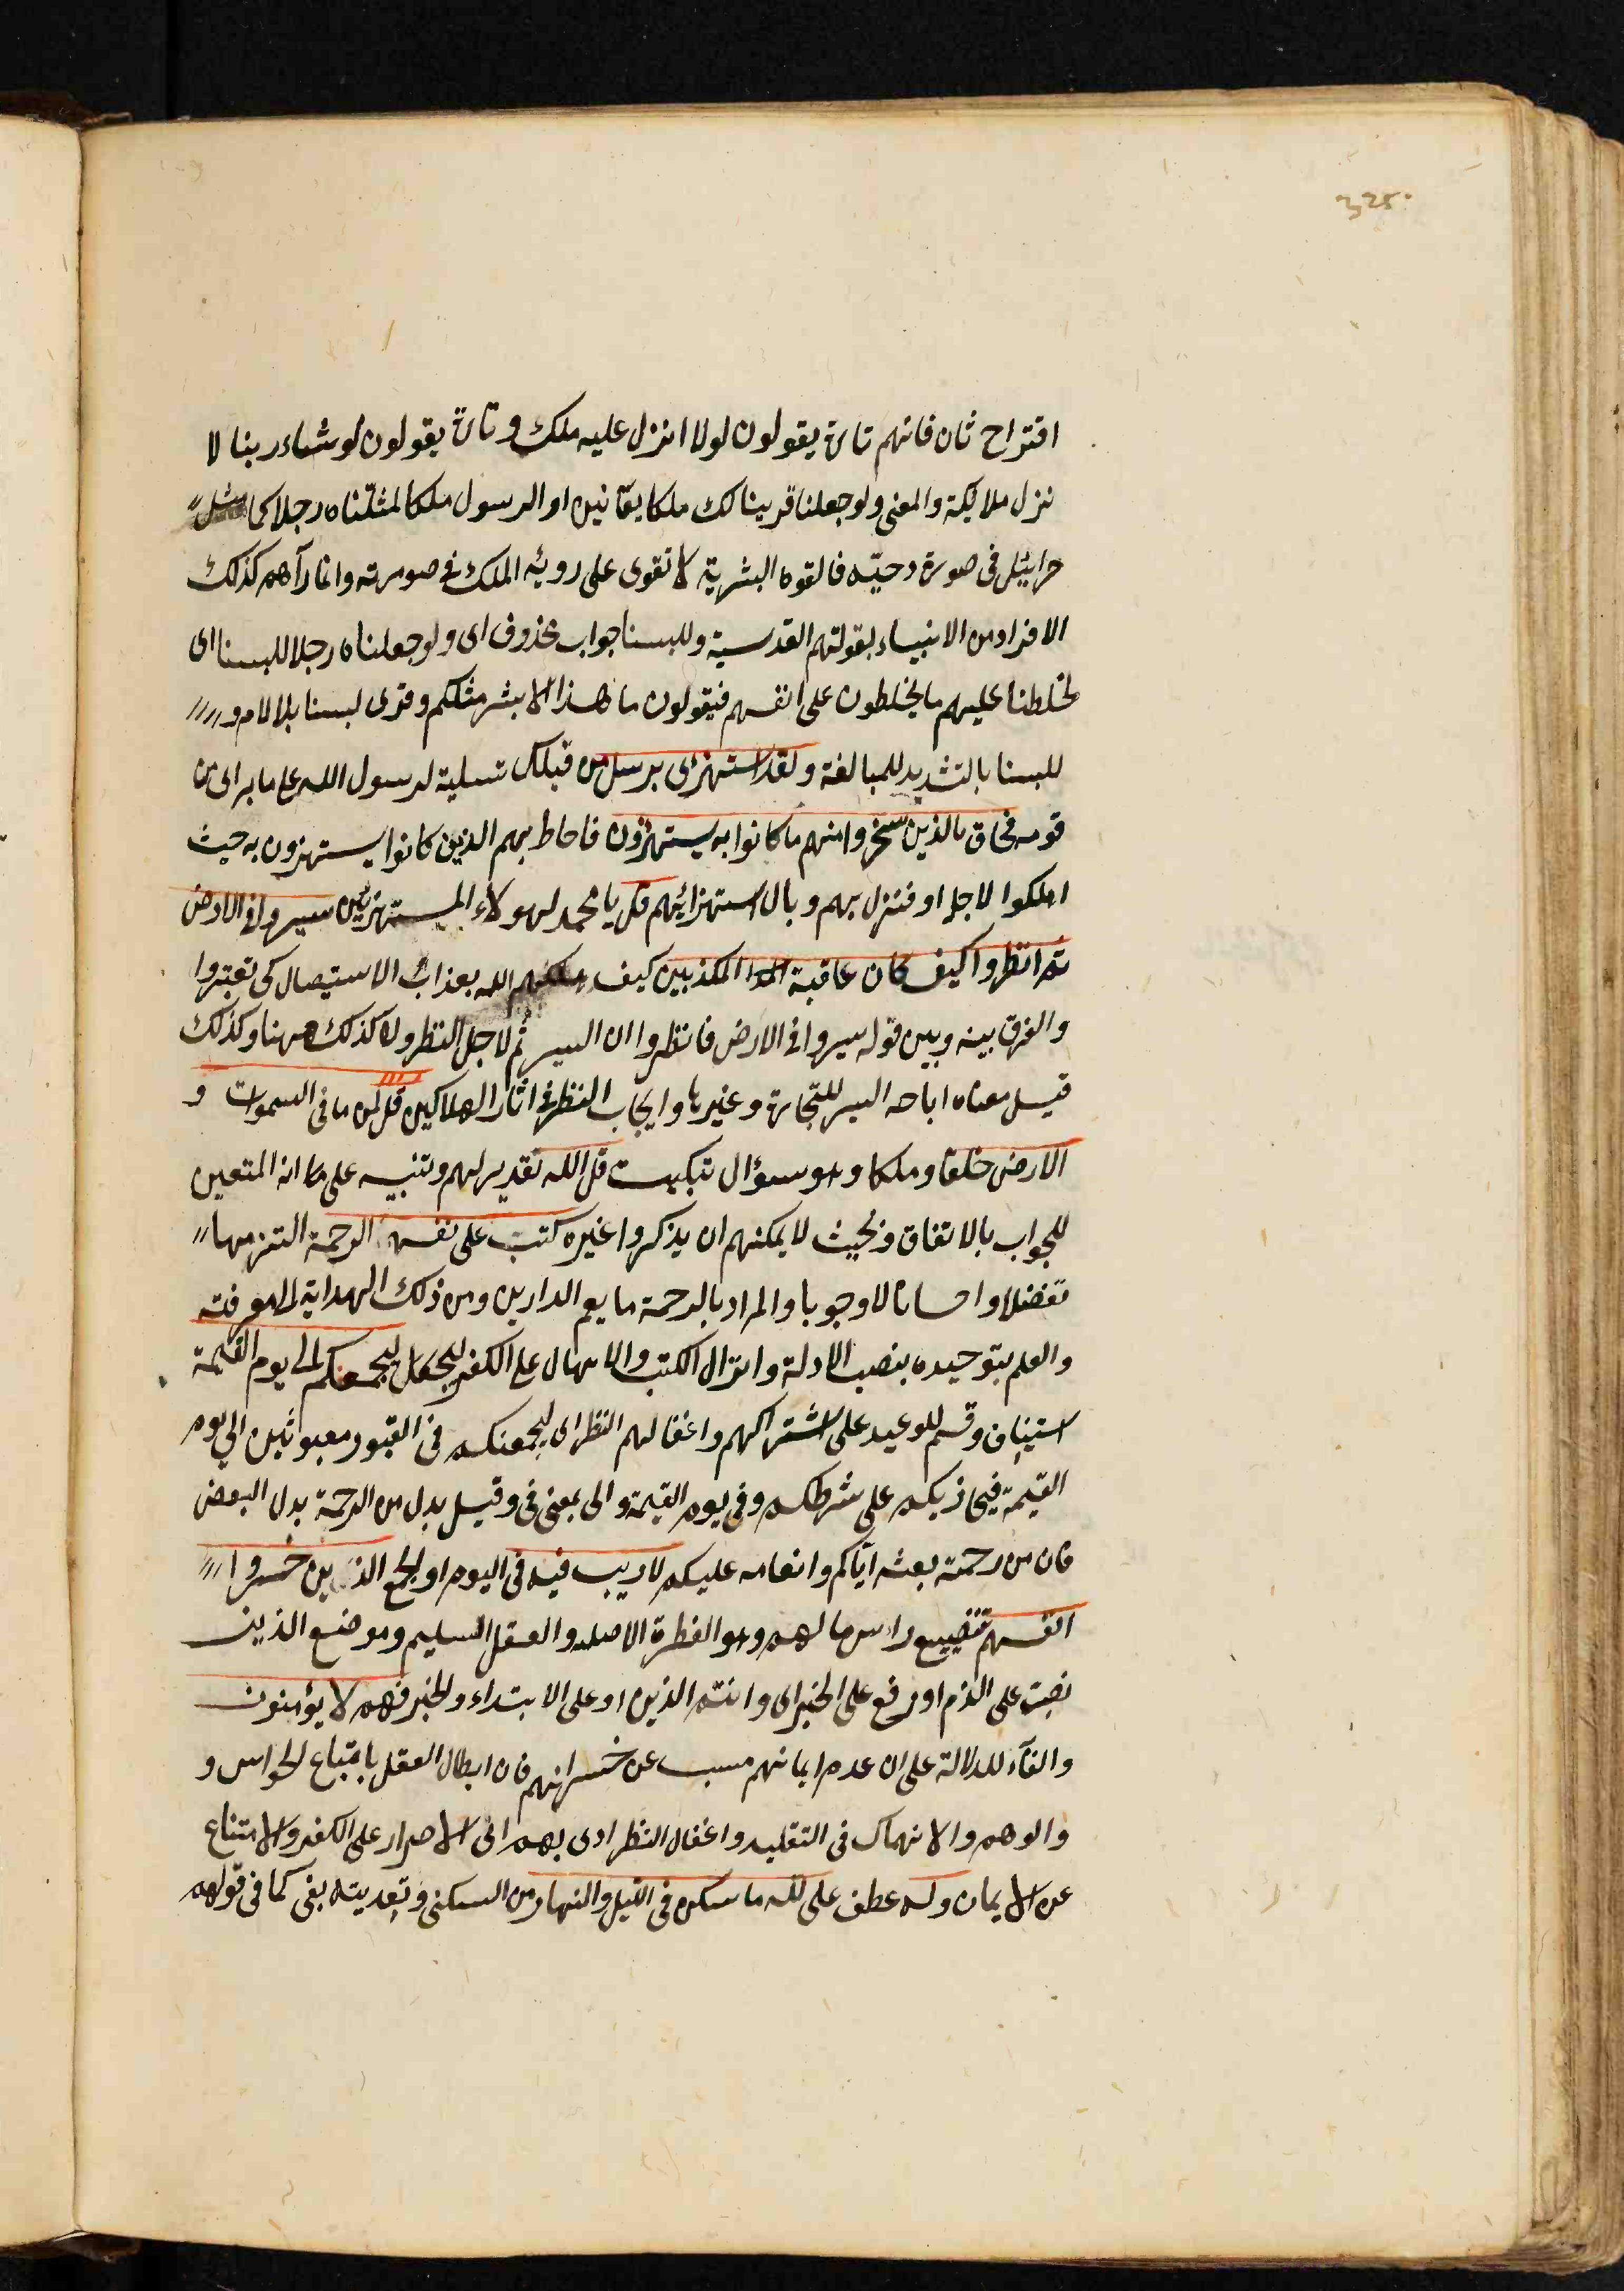 325.
اقتراح ثان فانهم تارة يقولون لولا انزل عليه ملك وتارة يقولون لوشاء ربنا لا
نزل ملايكة والمعنى ولوجعلنا قرينا لك ملكا يعانيه او الرسول ملكا لمثلناه رجلا كما مثل
جرائيل فى صورة دحيّه فالقوه البشرية لا تقوى على روية الملك فى صورته وانما رآهم كذلك
الافراد من الانبياء بقوتهم القدسية وللبسنا جواب محذوف اى ولوجعلناه رجلا للبسنا اى
لخلطنا عليهم ما يخلطون على انفسهم فيقولون ما هذا الا بشر مثلكم وقرى لبسنا بلا لام و
للبسنا بالتشديد للمبالغة ولقد استهزى برسل من قبلك تسلية لرسول الله على ما يرى من
قومه فحاق بالذين سخروا منهم ما كانوا به يستهزؤن فاحاط بهم الذين كانوا يستهزون به حيث
اهلكوا لاجله او فنزل بهم وبال استهزائهم قل يا محمد لهولاء المستهزئين سيروا فى الارض
ثم انظروا كيف كان عاقبة المكذبين كيف اهلكهم الله بعذاب الاستيصال كى تعتبروا
والفرق بينه وبين قوله سيروا فى الارض فانظروا ان السير ثم لاجل النظر ولا كذلك ههنا وكذلك
قيل معناه اباحه السير للتجارة وغيرها وايجاب النظر فى اثار الهالكين قل لمن ما فى السموات و
الارض خلقا وملكا وهو سوٴال تبكيت قل الله تقدير لهم وتنبيه على ما انه المتعين
للجواب بالاتفاق وبحيث لا يمكنهم ان يذكروا غيره كتب على نفسه الرحمة التزمها
تفضلا واحسانا لا وجوبا والمراد بالرحمة ما يعم الدارين ومن ذلك الهداية لمعرفته
والعلم بتوحيده بنصب الادلة وانزال الكتب والامهال على الكفر ليجمعنكم الى يوم القيمة
استيناف وقسم للوعيد على اشتراكهم واغفالهم النظر اى ليجمعنكم فى القبور مبعوثين الى يوم
القيمة فيجازيكم على شرككم وفى يوم القيمة والى بمعنى فى وقيل بدل من الرحمة بدل البعض
فان من رحمته بعثه اياكم وانعامه عليكم لا ريب فيه فى اليوم او الجمع الذين خسروا
انفسهم تضييع راس مالهم وهو الفطرة الاصليه والعقل السليم وموضع الذين
نصب على الذم او رفع على الخبر اى وانتم الذين او على الابتداء والخبر فهم لا يؤمنون
والفآء للدلالة على ان عدم ايمانهم مسبب عن خسرانهم فان ابطال العقل باتباع الحواس و
والوهم والانهماك فى التقليد واغفال النظر ادى بهم الى الاصرار على الكفر والامتناع
عن الايمان وله عطف على لله ما سكن فى الليل والنهار من السكنى وتعديته بفى كما فى قولهم